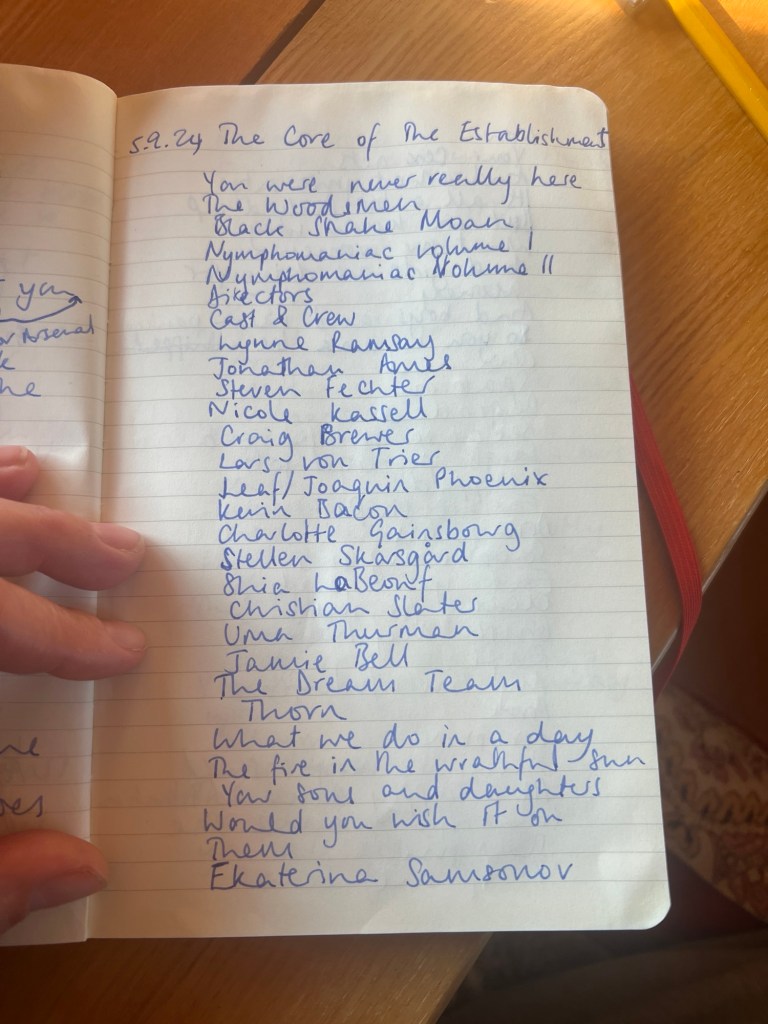 5.9.24 The Core of The Establishment
You were never really here
The Woodsmen
Black Snake Moan
Nymphomaniac volume I
Nymphomaniac Volume II
directors
Cast & Crew
Lynne Ramsay
Jonathan Ames
Steven Fechter
Nicole Kassell
Craig Brewer
Lars von Trier
Leaf/Joaquin Phoenix
Kevin Bacon
Charlotte Gainsbourg
Stellen Skarsgård
Shia LaBeouf
Christian Slater
Uma Thurman
Jamie Bell
The Dream Team
Thorn
What we do in a day
The fire in the wrathful sun
Your sons and daughters
Would you wish it on
Them
Ekaterina Samsonov
you
or Arsenal
he
ne
oes